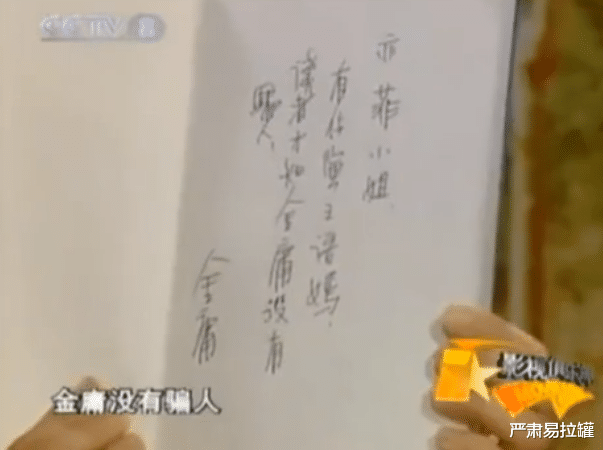 CCTV 8
亦菲小姐
有你演王语嫣,
读者才知金庸没有
骗人,
金庸
影视俱
金庸没有骗人
严肃易拉罐